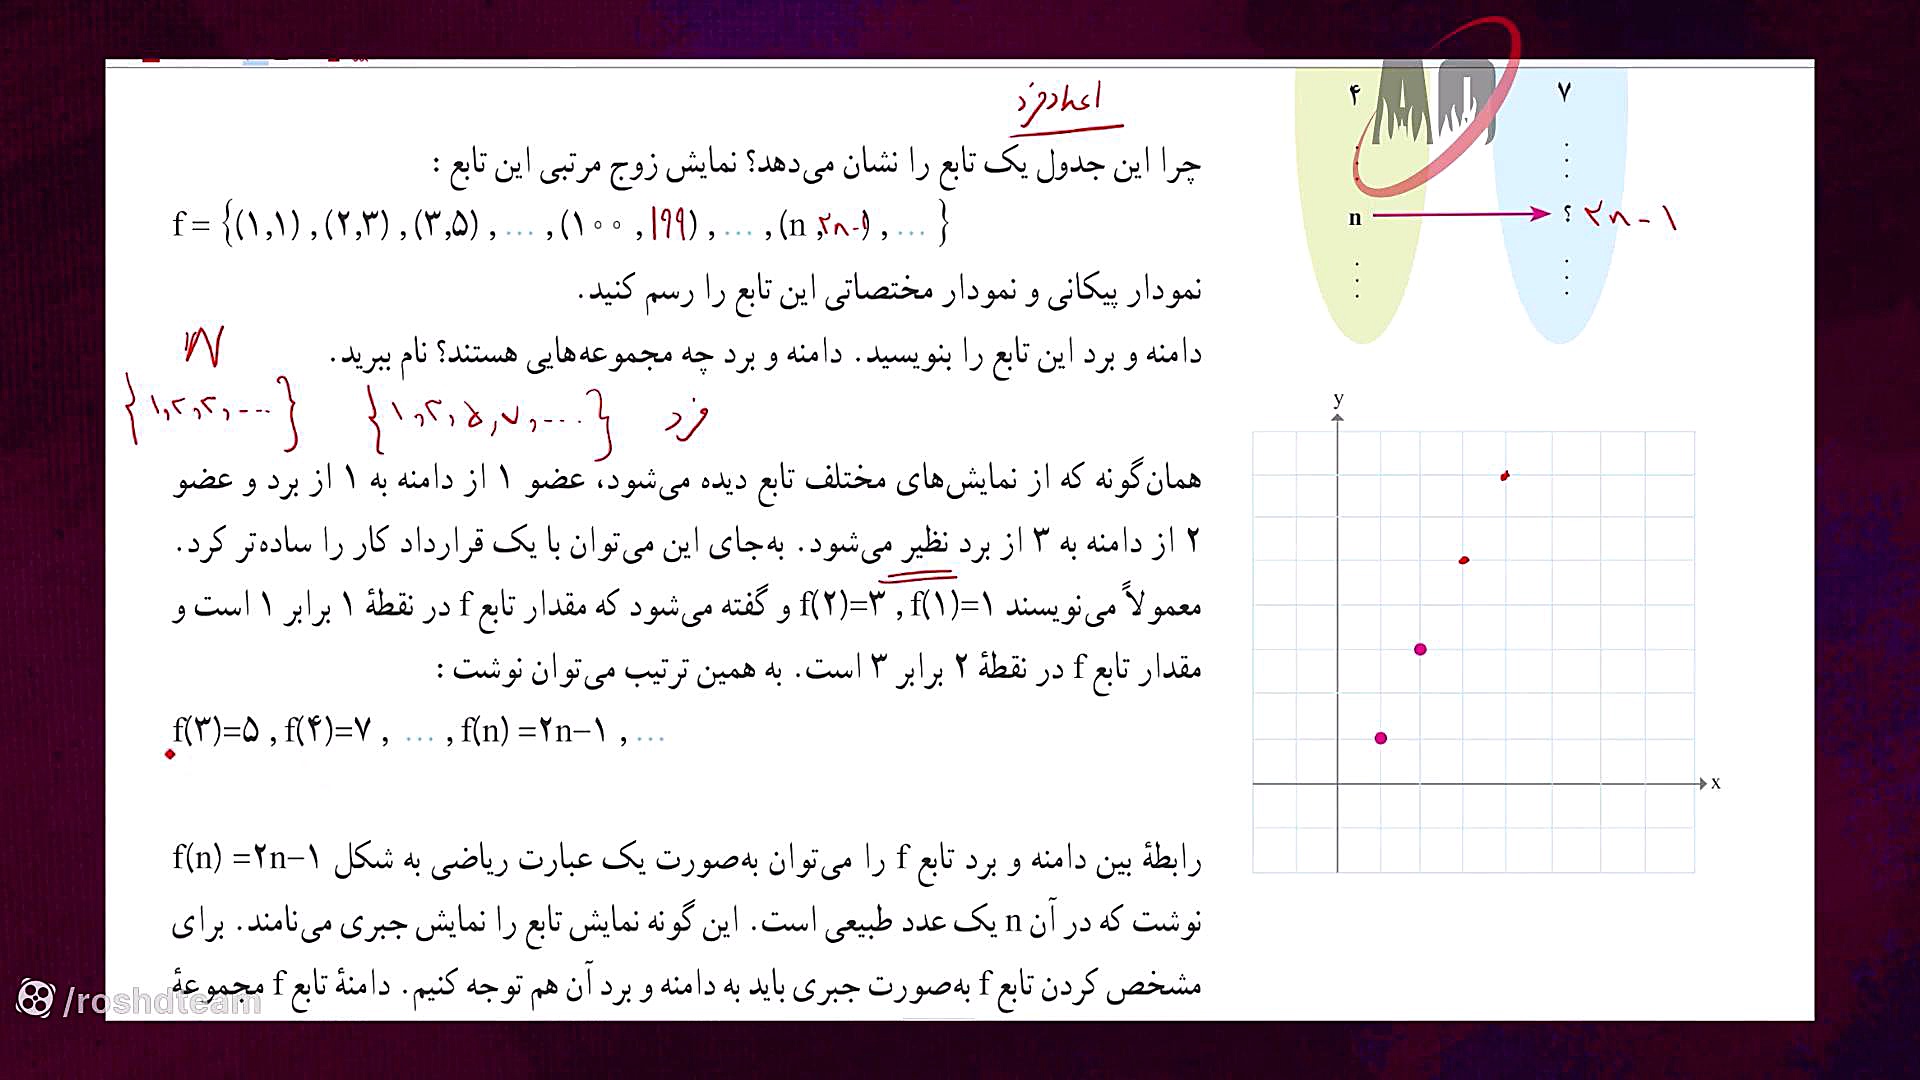 اعداد فرد
چرا این جدول یک تابع را نشان می‌دهد؟ نمایش زوج مرتبی این تابع :
f = {(۱,۱) , (۲,۳) , (۳,۵) , ... , (۱۰۰ , ۱۹۹) , ... , (n , ۲n-۱) , ... }
نمودار پیکانی و نمودار مختصاتی این تابع را رسم کنید.
دامنه و برد این تابع را بنویسید. دامنه و برد چه مجموعه‌هایی هستند؟ نام ببرید.
N
{۱,۲,۳,...} {۱,۳,۵,۷,...} فرد
همان‌گونه که از نمایش‌های مختلف تابع دیده می‌شود، عضو ۱ از دامنه به ۱ از برد و عضو
۲ از دامنه به ۳ از برد نظیر می‌شود. به‌جای این می‌توان با یک قرارداد کار را ساده‌تر کرد.
معمولاً می‌نویسند f(۲)=۳ , f(۱)=۱ و گفته می‌شود که مقدار تابع f در نقطهٔ ۱ برابر ۱ است و
مقدار تابع f در نقطهٔ ۲ برابر ۳ است. به همین ترتیب می‌توان نوشت :
f(۳)=۵ , f(۴)=۷ , ... , f(n) =۲n−۱ , ...
رابطهٔ بین دامنه و برد تابع f را می‌توان به‌صورت یک عبارت ریاضی به شکل f(n) =۲n−۱
نوشت که در آن n یک عدد طبیعی است. این گونه نمایش تابع را نمایش جبری می‌نامند. برای
مشخص کردن تابع f به‌صورت جبری باید به دامنه و برد آن هم توجه کنیم. دامنهٔ تابع f مجموعهٔ
۴ ۷
n ؟ ۲n-۱
y
x
/roshdteam